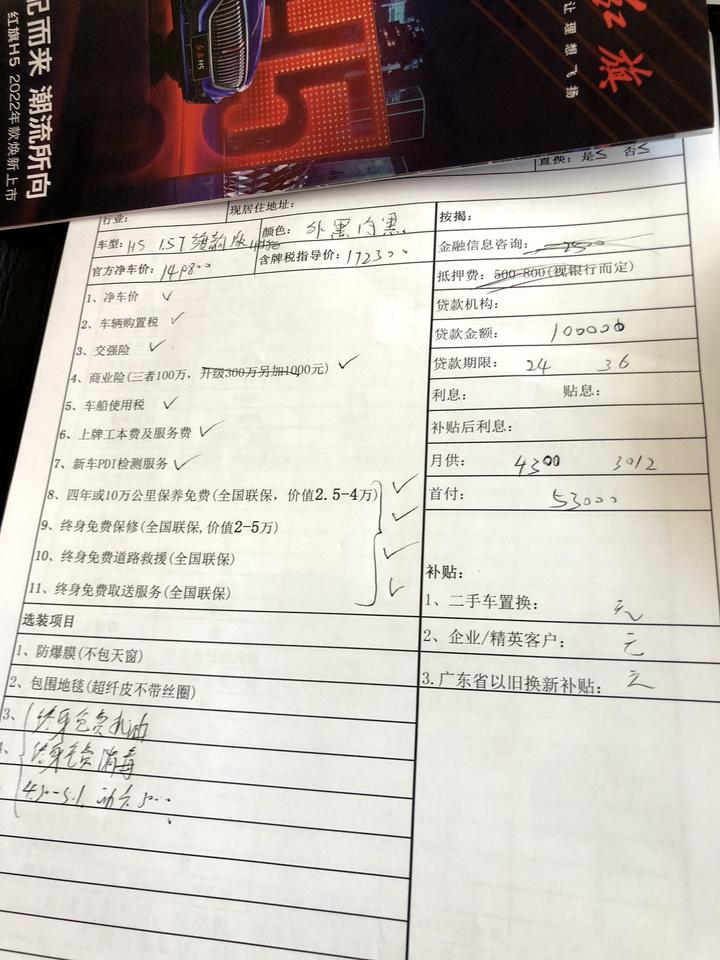 记而来 潮流所向
红旗H5 2022年款焕新上市
红旗H5
H5
红旗
让理想飞扬
置换：是 否
行业：
现居住地址：
车型：H5 1.5T
颜色：外黑内黑
官方净车价：149800
含牌税指导价：172300
1、净车价 ✓
2、车辆购置税 ✓
3、交强险 ✓
4、商业险(三者100万，升级300万另加1000元) ✓
5、车船使用税 ✓
6、上牌工本费及服务费 ✓
7、新车PDI检测服务 ✓
8、四年或10万公里保养免费(全国联保，价值2.5-4万) ✓
9、终身免费保修(全国联保,价值2-5万) ✓
10、终身免费道路救援(全国联保) ✓
11、终身免费取送服务(全国联保) ✓
选装项目
1、防爆膜(不包天窗)
2、包围地毯(超纤皮不带丝圈)
3、终身免费机油
终身免费消毒
4.30-5.1
按揭：
金融信息咨询：
抵押费：500-800(视银行而定)
贷款机构：
贷款金额：100000
贷款期限：24 36
利息： 贴息：
补贴后利息：
月供：4300 3012
首付：53000
补贴：
1、二手车置换：元
2、企业/精英客户：元
3.广东省以旧换新补贴：元